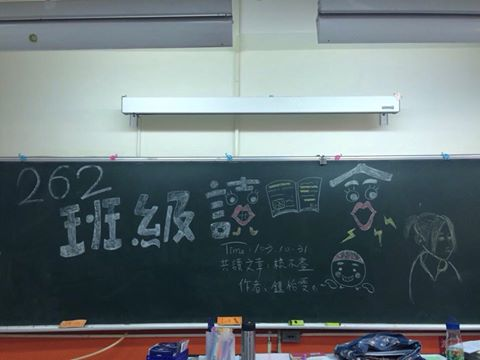 262
班級讀書會
Time:103.10.31
共讀文章:線不盡
作者:鍾怡雯